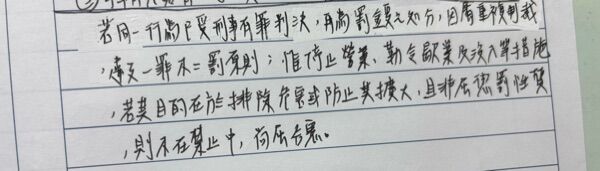 若同一行為已受刑事有罪判決,再為罰鍰之処分,因屬重複制裁
,違反一罪不二罰原則;惟停止營業、勒令歇業及沒入等措施
,若其目的在於排除危害或防止其擴大,且非屬懲罰性質
,則不在禁止中,尚屬合憲。